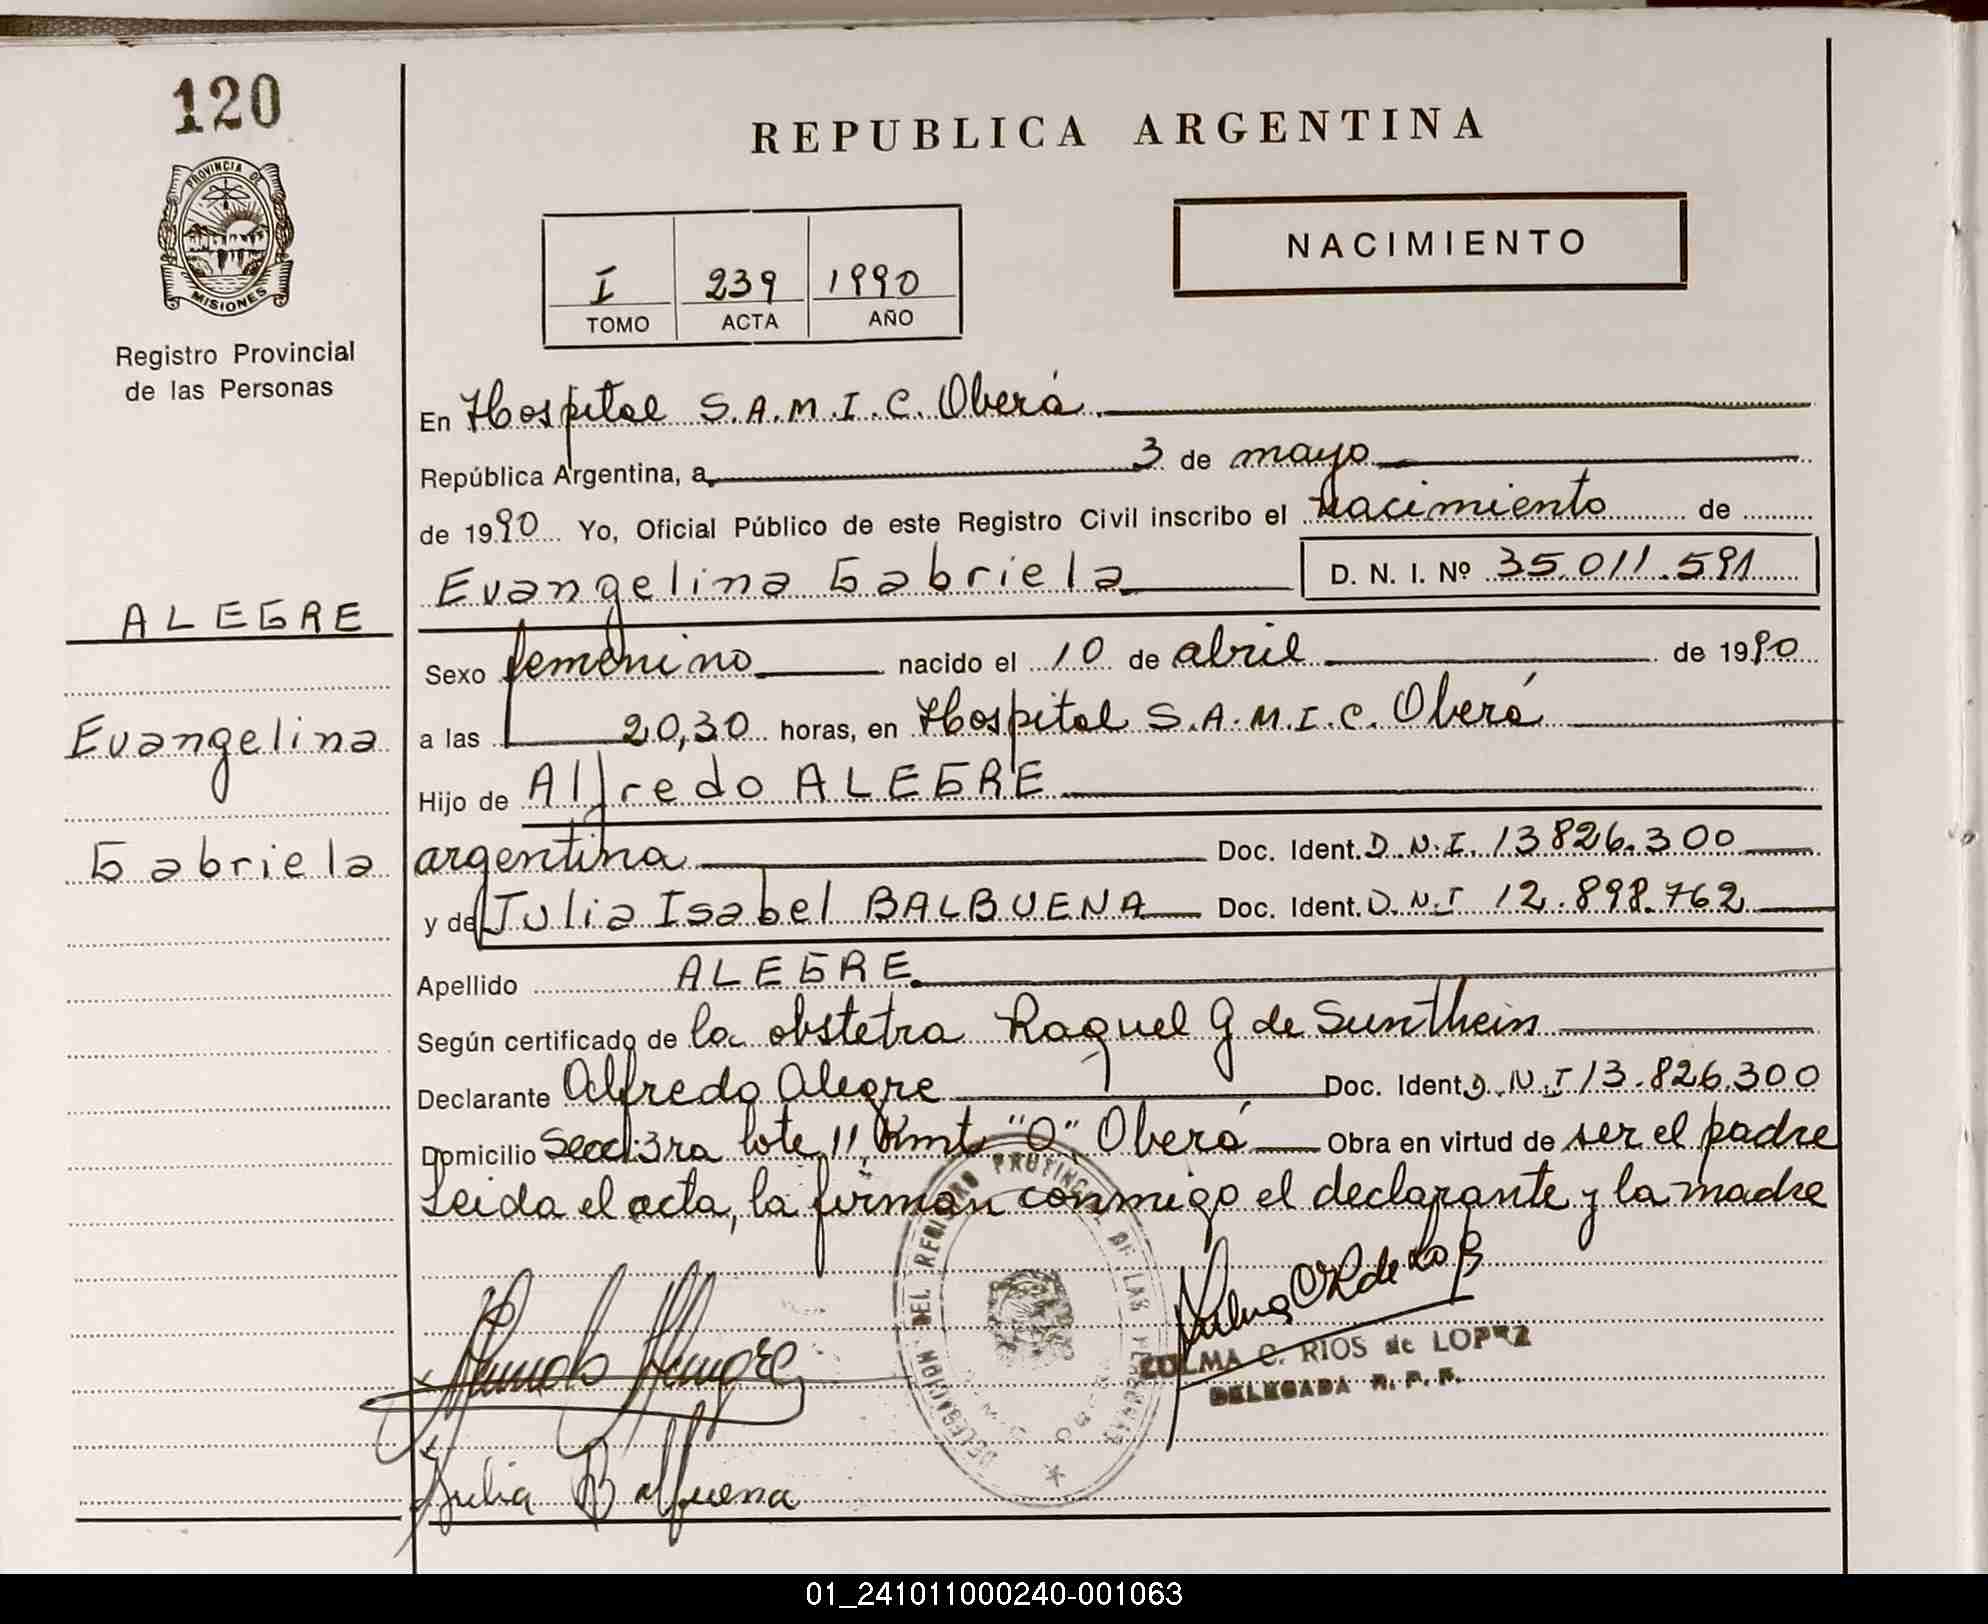 120
PROVINCIA DE
MISIONES
Registro Provincial
de las Personas
REPUBLICA ARGENTINA
I 239 1990
TOMO ACTA AÑO
NACIMIENTO
En Hospital S.A.M.I.C. Oberá
República Argentina, a 3 de mayo
de 1990 Yo, Oficial Público de este Registro Civil inscribo el nacimiento de
Evangelina Gabriela D. N. I. Nº 35.011.591
ALEGRE
Evangelina
Gabriela
Sexo femenino nacido el 10 de abril de 1990
a las 20,30 horas, en Hospital S.A.M.I.C. Oberá
Hijo de Alfredo ALEGRE
argentina Doc. Ident. D.N.I. 13826.300
y de Julia Isabel BALBUENA Doc. Ident. D.N.I 12.898.762
Apellido ALEGRE
Según certificado de la obstetra Raquel G de Sunthein
Declarante Alfredo Alegre Doc. Ident. D.N.I 13.826.300
Domicilio Secc. 3ra lote 11 Kmt "0" Oberá Obra en virtud de ser el padre
Leida el acta, la firman conmigo el declarante y la madre
DELEGACION DEL REGISTRO PROVINCIAL DE LAS PERSONAS
ZULMA C. RIOS de LOPEZ
DELEGADA R. P. P.
Julia Balbuena
01_241011000240-001063